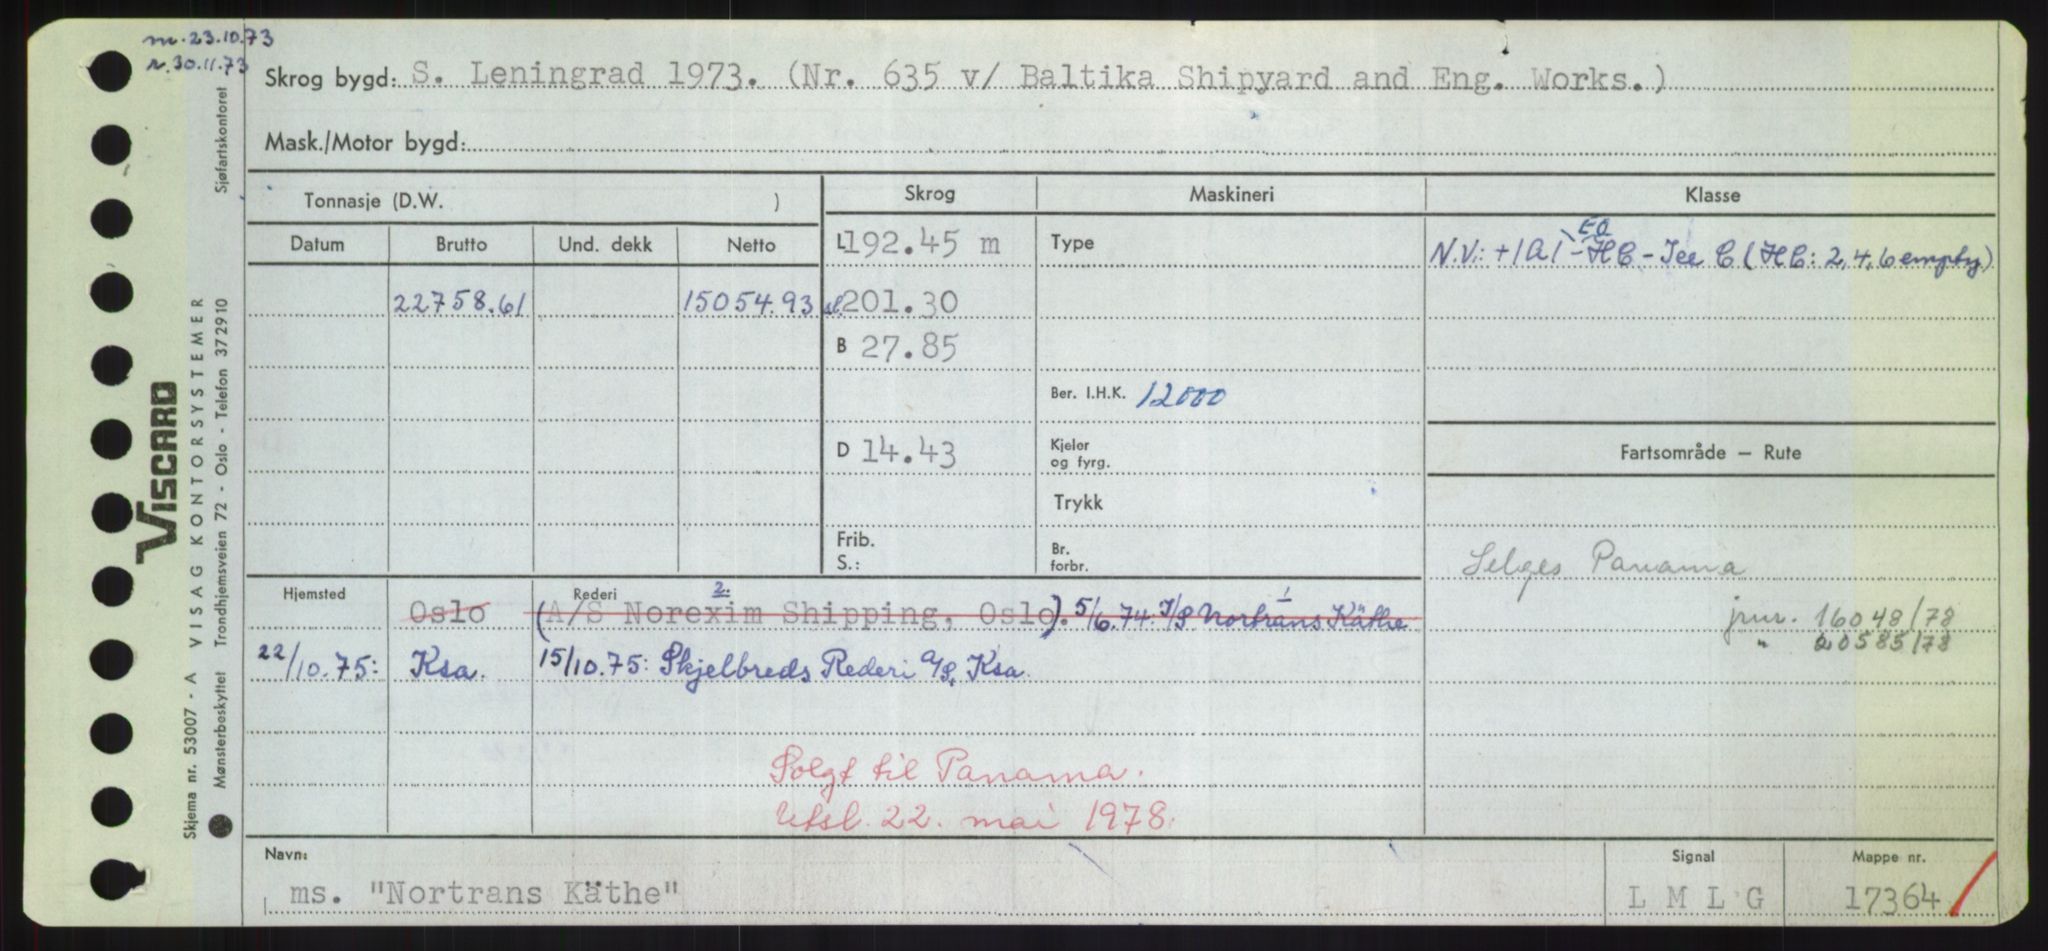 m. 23.10.73
r. 30.11.73
Skrog bygd: S. Leningrad 1973. (Nr. 635 v/ Baltika Shipyard and Eng. Works.)
Mask./Motor bygd:
Tonnasje (D.W. )
Skrog
Maskineri
Klasse
Datum Brutto Und. dekk Netto
L 192.45 m
Type
EO
N.V.: +1A1-HC-Ice C (HC: 2,4,6 empty)
22758.61 15054.93
sl. 201.30
B 27.85
Ber. I.H.K. 12000
D 14.43
Kjeler
og fyrg.
Fartsområde – Rute
Trykk
Frib.
S.:
Br.
forbr.
Selges Panama
jnr. 16048/78
" 20585/78
Hjemsted
Rederi
2. 1
Oslo (A/S Norexim Shipping, Oslo). 5/6.74: I/S Nortrans Käthe
22/10.75: Ksa. 15/10.75: Skjelbreds Rederi A/S, Ksa.
Solgt til Panama.
Utsl. 22. mai 1978.
Navn:
ms. "Nortrans Käthe"
Signal
L M L G
Mappe nr.
17364
VISCARD
Skjema nr. 53007 - A VISAG KONTORSYSTEMER
Mønsterbeskyttet Trondhjemsveien 72 - Oslo - Telefon 372910 Sjøfartskontoret